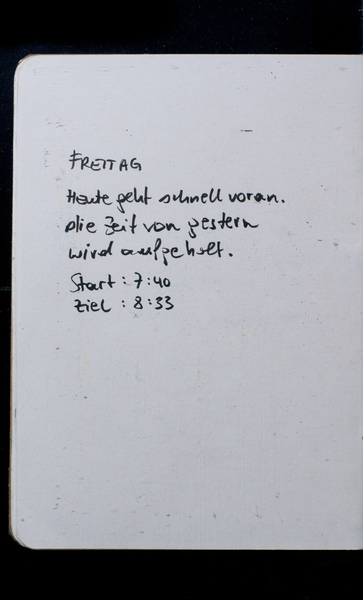 FREITAG
Heute geht schnell voran.
Die Zeit von gestern
wird aufgeholt.
Start : 7:40
Ziel : 8:33